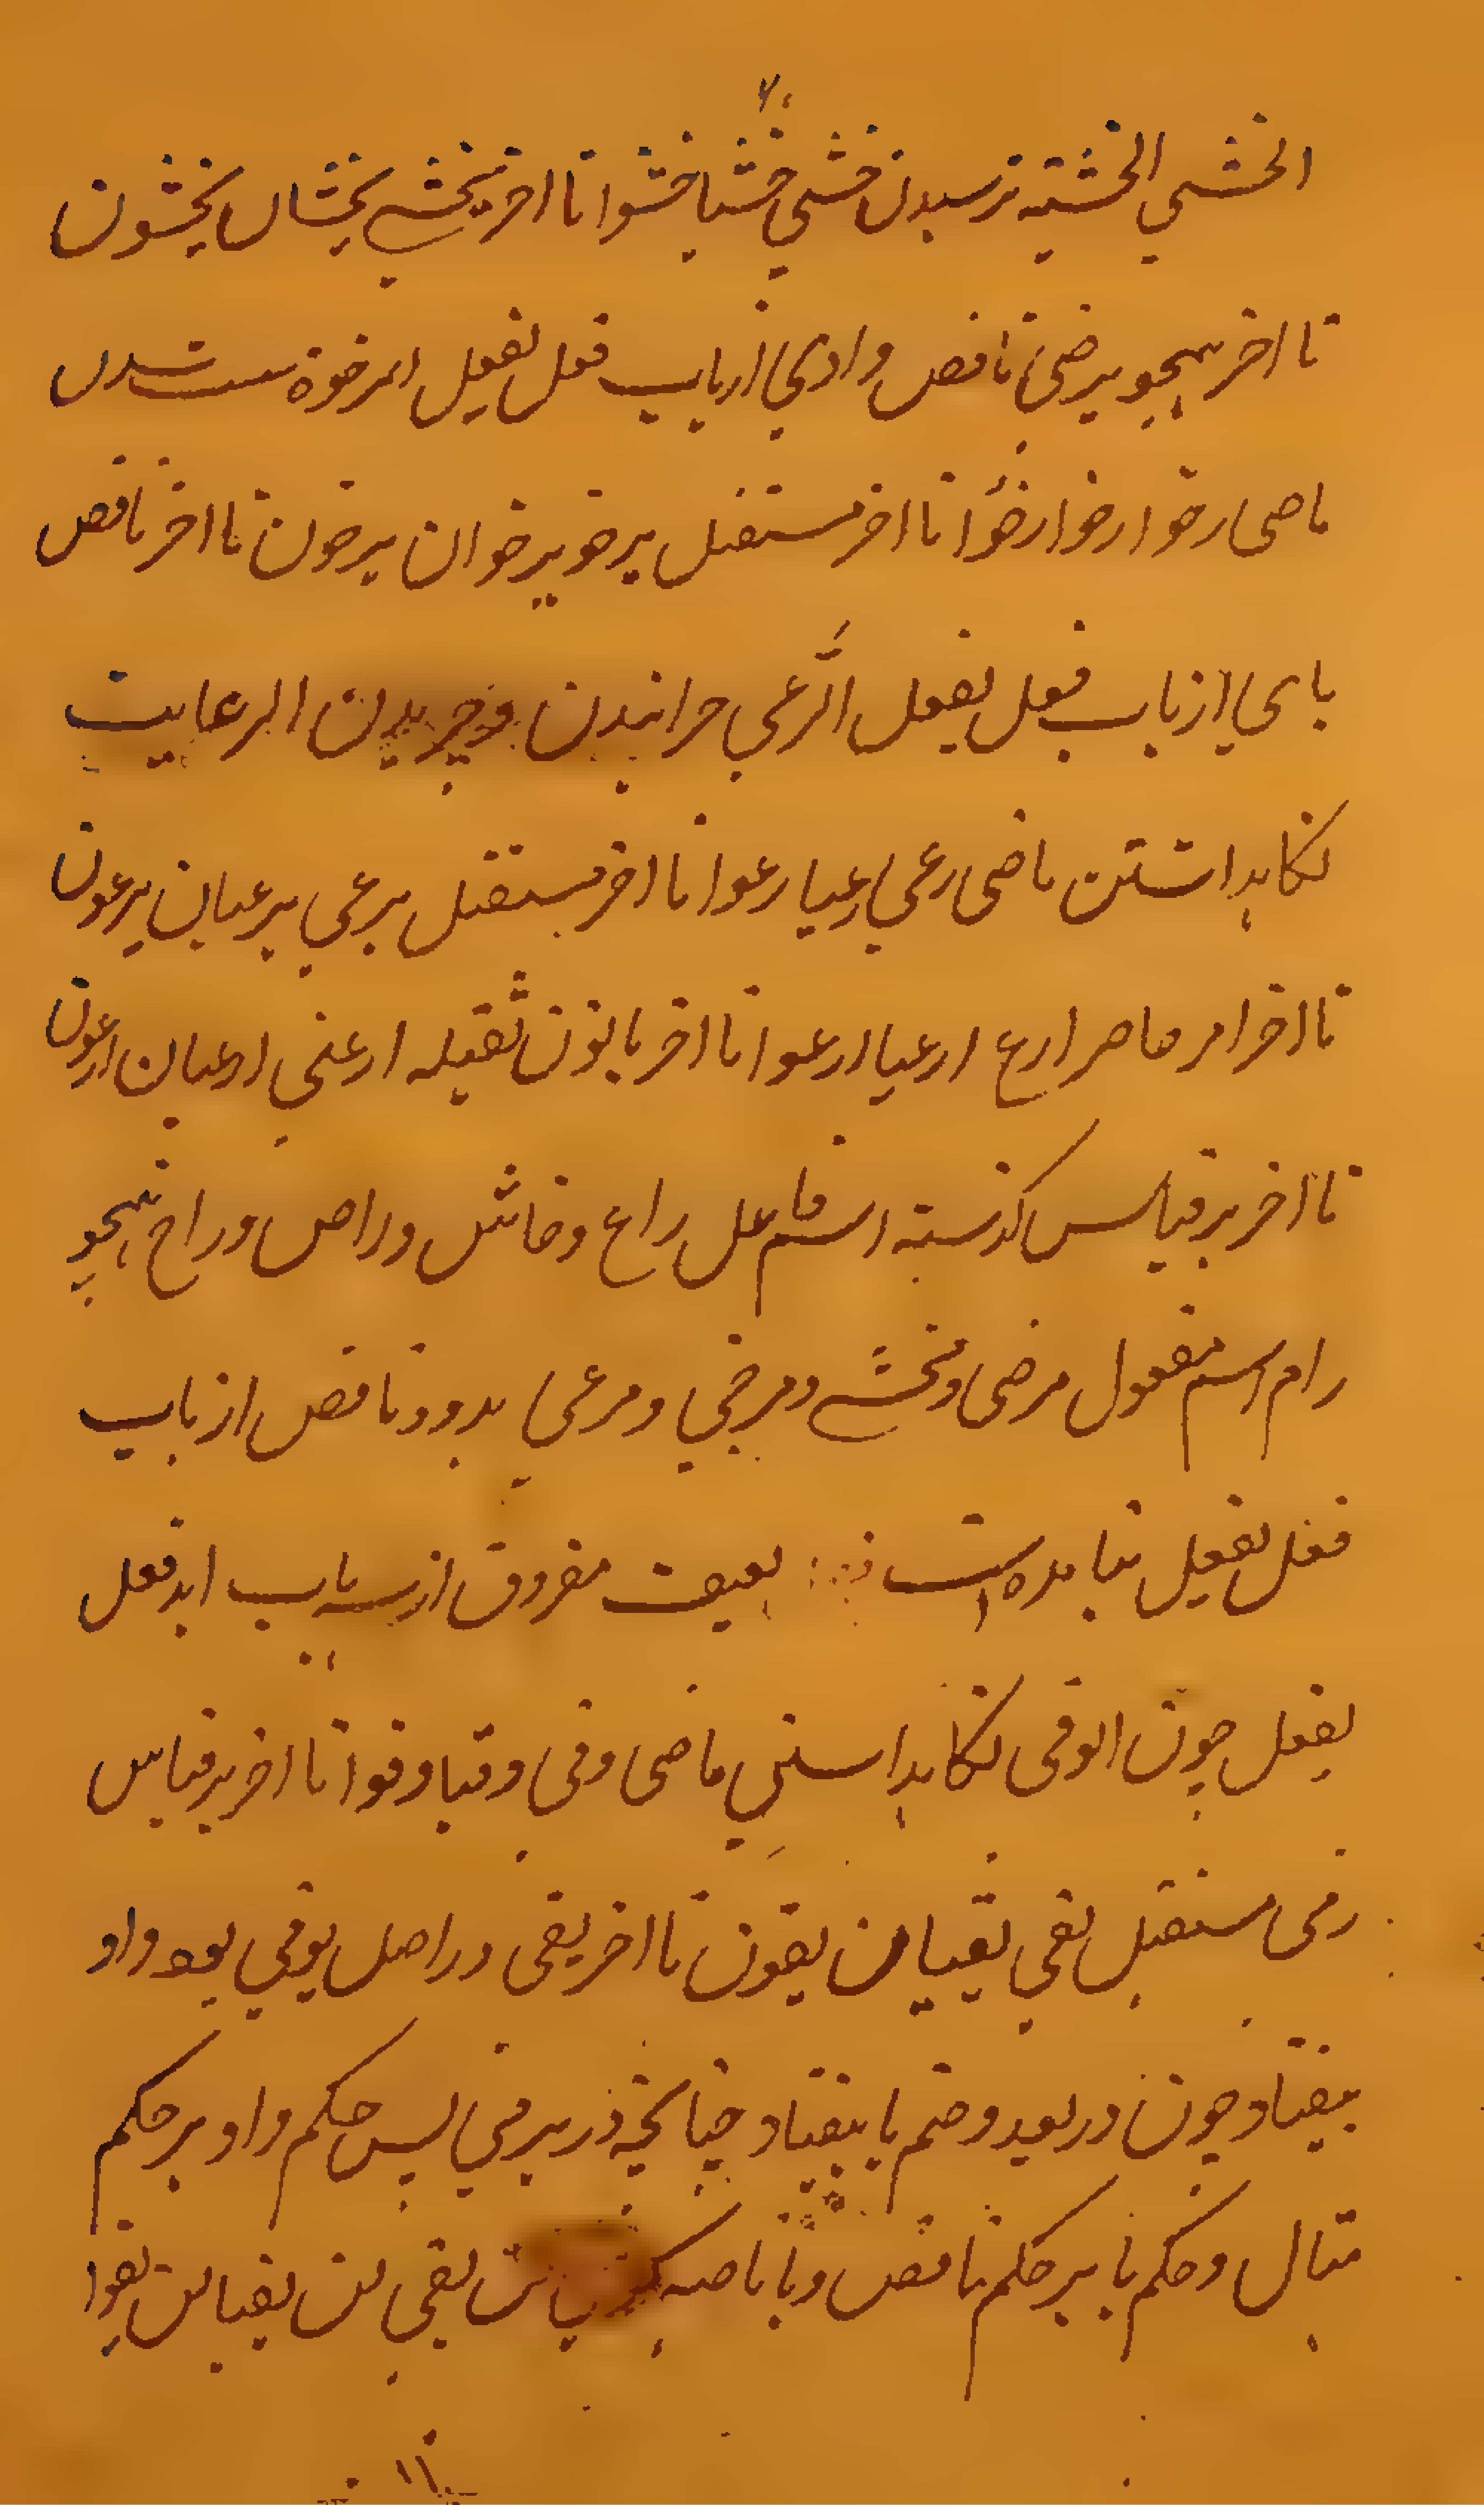 الخشي الخشية ترسیدن خشي خشیا خشوا تا اخر یخشي یخشیان یخشون
تا اخر همچو یرضی ناقص وادي از باب فعل یفعل الرخوة سست شدن
ماضی رخو ارخوا رخوا تا اخر مستقبل یرخو یرخوان یرخون تا اخر ناقص
یای از باب فعل یفعل الرَّعي چرانیدن و چریدن الرعایت
نکاهداشتن ماضی رعي رعیا رعوا تا اخر مستقبل یرعي یرعیان یرعون
تا اخر امر حاضر ارع ارعیا ارعوا تا اخر بانون ثقیله ارعین ارعیان ارعون
تا اخر بر قیاس کذشته اسم فاعل راع و خاش و راض و راخ همچو
رام اسم مفعول مرضی و مخشي و مرخي و مرعي بدو و ناقص از باب
فعل یفعل نیامده است لفیف مفروق از سه باب اید فعل
یفعل چون الوقی نکاهداشتن ماضی وقی وقیا وقوا تا اخر بر قیاس
رمی مستقبل یقي یقیان یقون تا اخر یقی در اصل یوقي بود واو
بیفتاد چون در یعد و ضم یا بیفتاد چنانچه در یرمي پس حکم واو بر حکم
مثال و حکم یا بر حکم ناقص و با ناصبه لن یقي لن یقیا لن یقوا